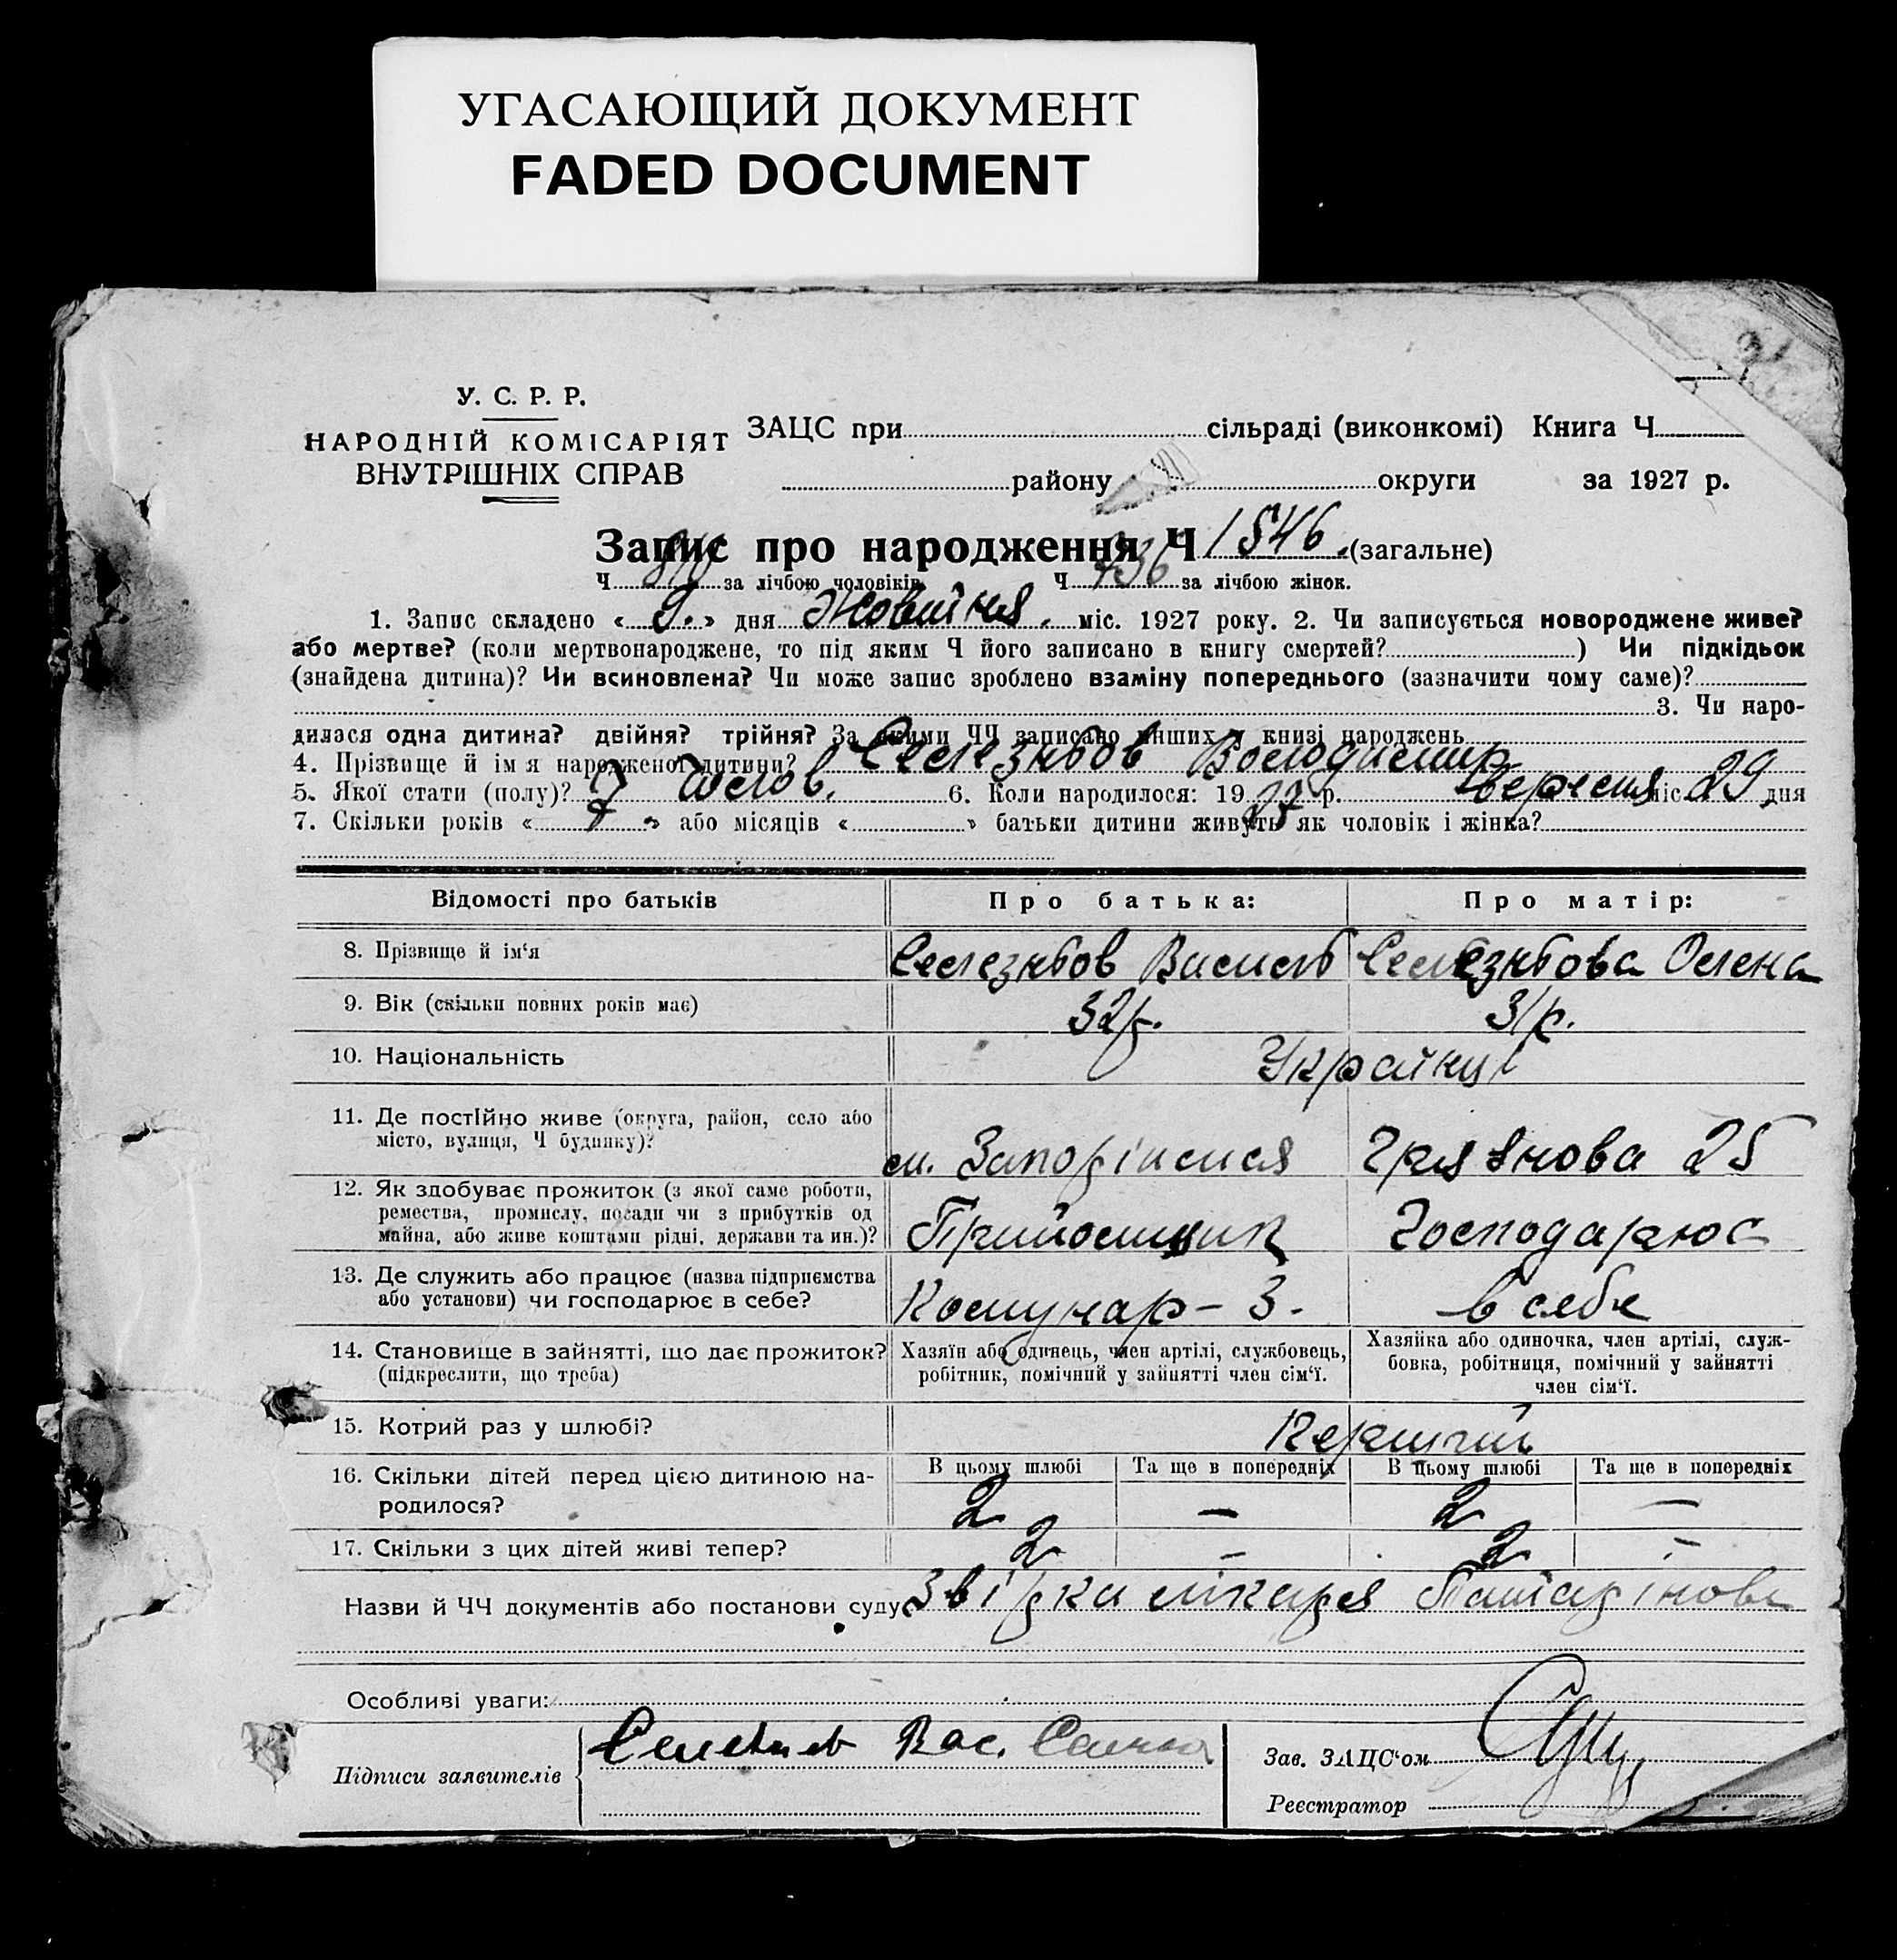 УГАСАЮЩИЙ ДОКУМЕНТ
FADED DOCUMENT
У. С. Р. Р.
НАРОДНІЙ КОМІСАРІЯТ
ВНУТРІШНІХ СПРАВ
ЗАЦС при сільраді (виконкомі) Книга Ч
району округи за 1927 р.
Запис про народження Ч 1546. (загальне)
Ч 810 за лічбою чоловіків Ч 736 за лічбою жінок.
1. Запис складено « 9. » дня Жовтня. міс. 1927 року. 2. Чи записується новороджене живе?
або мертве? (коли мертвонароджене, то під яким Ч його записано в книгу смертей? ) Чи підкідьок
(знайдена дитина)? Чи всиновлена? Чи може запис зроблено взаміну попереднього (зазначити чому саме)?
3. Чи наро-
дилася одна дитина? двійня? трійня? За якими ЧЧ записано інших у книзі народжень
4. Прізвище й ім я народженої дитини? Селезньов Володимир
5. Якої стати (полу)? Чолов. 6. Коли народилося: 19 27 р. вересня міс 29 дня
7. Скільки років « 7 » або місяців « » батьки дитини живуть як чоловік і жінка?
Відомості про батьків Про батька: Про матір:
8. Прізвище й ім‘я Селезньов Василь Селезньова Олена
9. Вік (скільки повних років має) 32р. 31р.
10. Національність Українці
11. Де постІйно живе (округа, район, село або
місто, вулиця, Ч будинку)?
м. Запоріжжя Грязнова 25
12. Як здобуває прожиток (з якої саме роботи,
ремества, промислу, посади чи з прибутків од
майна, або живе коштами рідні, держави та ин.)?
Прийомщик Господарює
13. Де служить або працює (назва підприємства
або установи) чи господарює в себе?
Комунар - З. в себе
14. Становище в зайнятті, що дає прожиток?
(підкреслити, що треба)
Хазяїн або одинець, член артілі, службовець,
робітник, помічний у зайнятті член сім‘ї.
Хазяйка або одиночка, член артілі, служ-
бовка, робітниця, помічний у зайнятті
член сім‘ї.
15. Котрий раз у шлюбі? Перший
16. Скільки дітей перед цією дитиною на-
родилося?
В цьому шлюбі Та ще в попередніх В цьому шлюбі Та ще в попередніх
2 — 2 —
17. Скільки з цих дітей живі тепер? 2 — 2 —
Назви й ЧЧ документів або постанови суду лікаря
Особливі уваги:
Підписи заявителів
Зав. ЗАЦС‘ом
Реєстратор